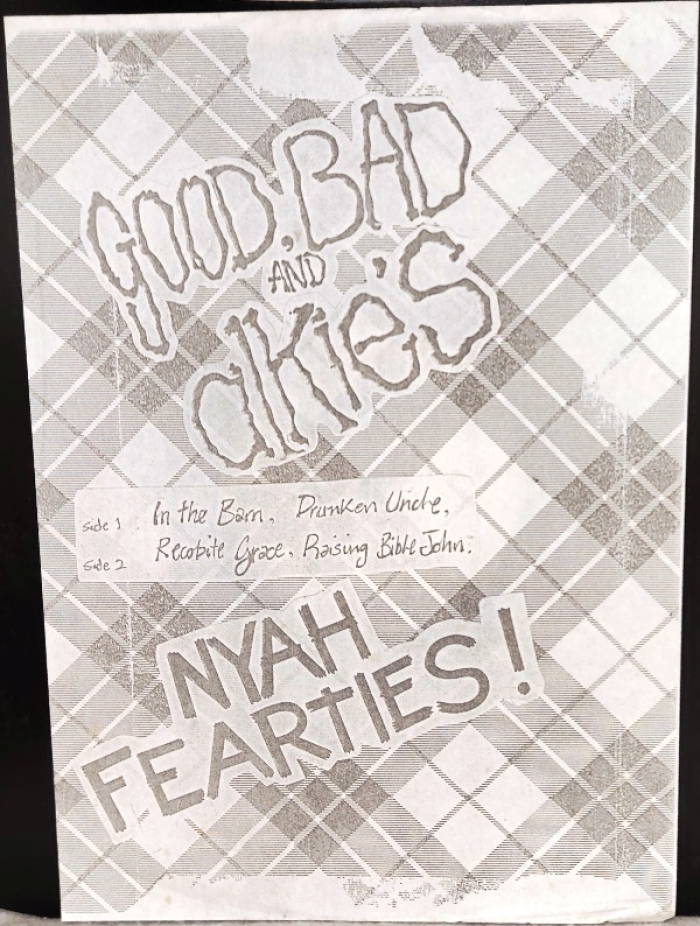 GOOD, BAD
AND
alkie's
Side 1 In the Barn, Drunken Uncle,
Side 2 Recobite Grace, Raising Bible John.
NYAH
FEARTIES!